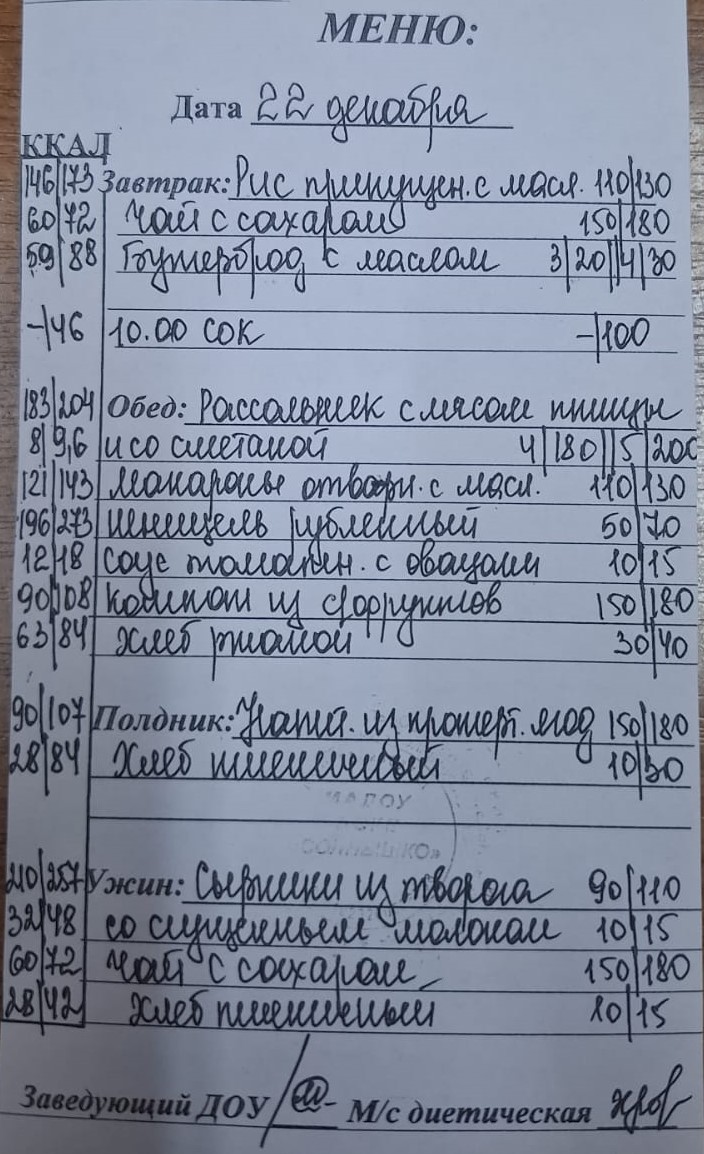 МЕНЮ:
Дата 22 декабря
ККАЛ
146/173 Завтрак: Рис припущен. с масл. 110/130
60/72 Чай с сахаром 150/180
59/88 Бутерброд с маслом 3/20//4/30
-/46 10.00 сок -/100
183/204 Обед: Рассольник с мясом птицы
8/9,6 и со сметаной 4/180//5/200
121/143 макароны отварн. с масл. 110/130
196/273 шницель рубленный 50/70
12/18 соус томатн. с овощами 10/15
90/108 компот из с/фруктов 150/180
63/84 хлеб ржаной 30/40
90/107 Полдник: Напит. из протерт. ягод 150/180
28/84 Хлеб пшеничный 10/30
МАДОУ
СОЛНЫШКО»
210/257 Ужин: Сырники из творога 90/110
32/48 со сгущенным молоком 10/15
60/72 Чай с сахаром 150/180
28/42 Хлеб пшеничный 10/15
Заведующий ДОУ М/с диетическая